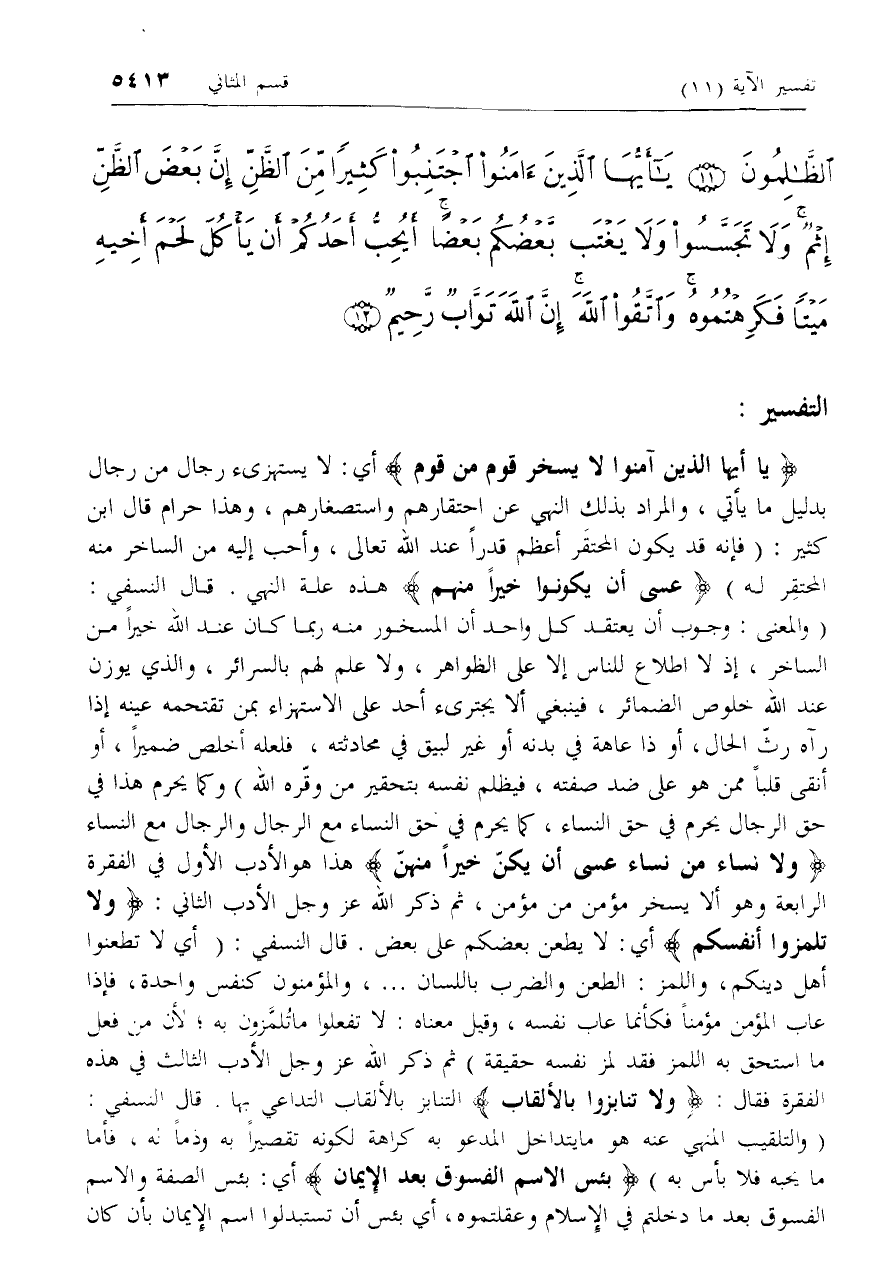 تفسير الآية (١١) قسم المثاني ٥٤١٣
ٱلظَّٰلِمُونَ ﴿١١﴾ يَٰٓأَيُّهَا ٱلَّذِينَ ءَامَنُوا۟ ٱجْتَنِبُوا۟ كَثِيرًا مِّنَ ٱلظَّنِّ إِنَّ بَعْضَ ٱلظَّنِّ
إِثْمٌ ۖ وَلَا تَجَسَّسُوا۟ وَلَا يَغْتَب بَّعْضُكُم بَعْضًا ۚ أَيُحِبُّ أَحَدُكُمْ أَن يَأْكُلَ لَحْمَ أَخِيهِ
مَيْتًا فَكَرِهْتُمُوهُ ۚ وَٱتَّقُوا۟ ٱللَّهَ ۚ إِنَّ ٱللَّهَ تَوَّابٌ رَّحِيمٌ ﴿١٢﴾
التفسير :
﴿ يا أيها الذين آمنوا لا يسخر قوم من قوم ﴾ أي : لا يستهزىء رجال من رجال
بدليل ما يأتي ، والمراد بذلك النهي عن احتقارهم واستصغارهم ، وهذا حرام قال ابن
كثير : ( فإنه قد يكون المحتقَر أعظم قدراً عند الله تعالى ، وأحب إليه من الساخر منه
المحتقِر له ) ﴿ عسى أن يكونوا خيراً منهم ﴾ هذه علة النهي . قال النسفي :
( والمعنى : وجوب أن يعتقد كل واحد أن المسخور منه ربما كان عند الله خيراً من
الساخر ، إذ لا اطلاع للناس إلا على الظواهر ، ولا علم لهم بالسرائر ، والذي يوزن
عند الله خلوص الضمائر ، فينبغي ألا يجترىء أحد على الاستهزاء بمن تقتحمه عينه إذا
رآه رثّ الحال ، أو ذا عاهة في بدنه أو غير لبيق في محادثته ، فلعله أخلص ضميراً ، أو
أنقى قلباً ممن هو على ضد صفته ، فيظلم نفسه بتحقير من وقّره الله ) وكما يحرم هذا في
حق الرجال يحرم في حق النساء ، كما يحرم في حق النساء مع الرجال والرجال مع النساء
﴿ ولا نساء من نساء عسى أن يكنّ خيراً منهنّ ﴾ هذا هو الأدب الأول في الفقرة
الرابعة وهو ألا يسخر مؤمن من مؤمن ، ثم ذكر الله عز وجل الأدب الثاني : ﴿ ولا
تلمزوا أنفسكم ﴾ أي : لا يطعن بعضكم على بعض . قال النسفي : ( أي لا تطعنوا
أهل دينكم ، واللمز : الطعن والضرب باللسان ... ، والمؤمنون كنفس واحدة ، فإذا
عاب المؤمن مؤمناً فكأنما عاب نفسه ، وقيل معناه : لا تفعلوا ماتُلمَّزون به ؛ لأن من فعل
ما استحق به اللمز فقد لمز نفسه حقيقة ) ثم ذكر الله عز وجل الأدب الثالث في هذه
الفقرة فقال : ﴿ ولا تنابزوا بالألقاب ﴾ التنابز بالألقاب التداعي بها . قال النسفي :
( والتلقيب المنهي عنه هو مايتداخل المدعو به كراهة لكونه تقصيراً به وذماً له ، فأما
ما يحبه فلا بأس به ) ﴿ بئس الاسم الفسوق بعد الإيمان ﴾ أي : بئس الصفة والاسم
الفسوق بعد ما دخلتم في الإسلام وعقلتموه ، أي بئس أن تستبدلوا اسم الإيمان بأن كان